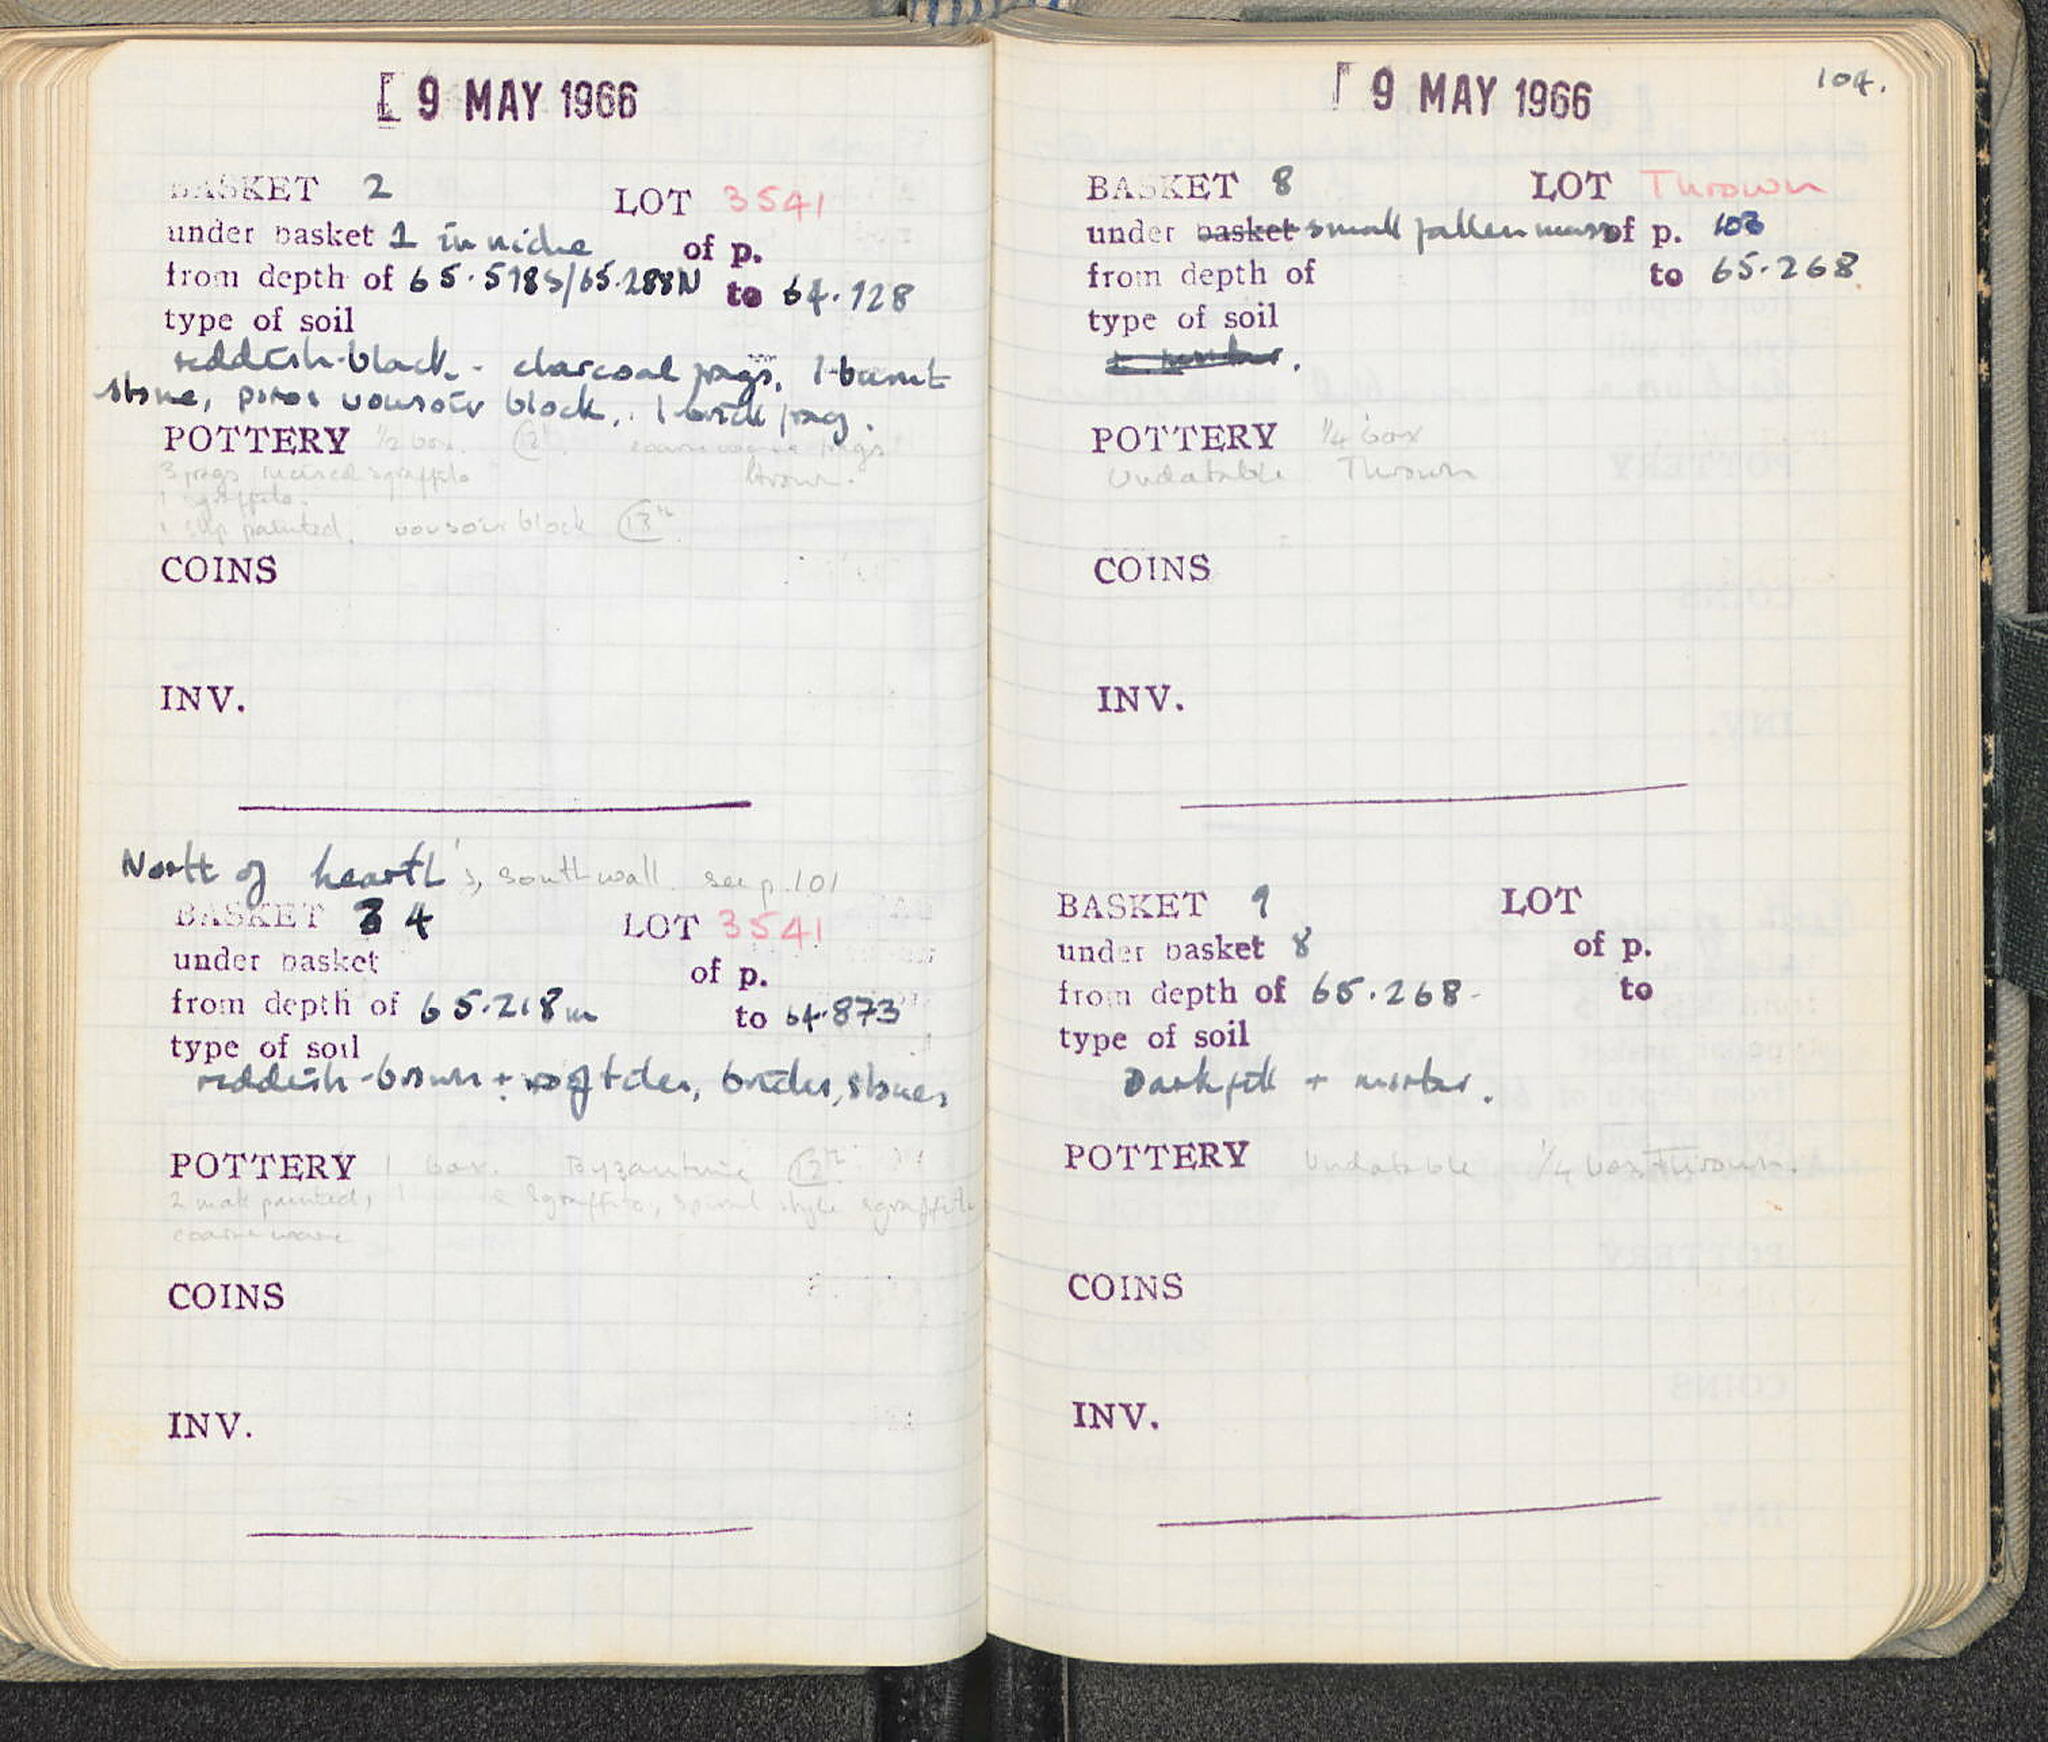 9 MAY 1966
BASKET 2 LOT 3541
under basket 1 in niche of p.
from depth of 65.518S/65.288N to 64.128
type of soil
reddish-black - charcoal frags, 1 burnt
stone, poros voussoir block, 1 brick frag.
POTTERY 1/2 box. 12th coarse ware frags
3 frags incised sgraffito thrown.
1 sgraffito.
1 slip painted. voussoir block 13th
COINS
INV.
North of hearth's, south wall. see p. 101
BASKET 3 4 LOT 3541
under basket of p.
from depth of 65.218m to 64.873
type of soil
reddish-brown + roof tiles, bricks, stones
POTTERY 1 box. Byzantine 12th
2 matt painted, 1 sgraffito, spiral style sgraffito
coarse ware
COINS
INV.
9 MAY 1966 104.
BASKET 8 LOT Thrown
under basket small fallen mass of p. 103
from depth of to 65.268
type of soil
POTTERY 1/4 box
Undatable Thrown
COINS
INV.
BASKET 9 LOT
under basket 8 of p.
from depth of 65.268 - to
type of soil
Dark fill + mortar.
POTTERY Undatable 1/4 box Thrown.
COINS
INV.